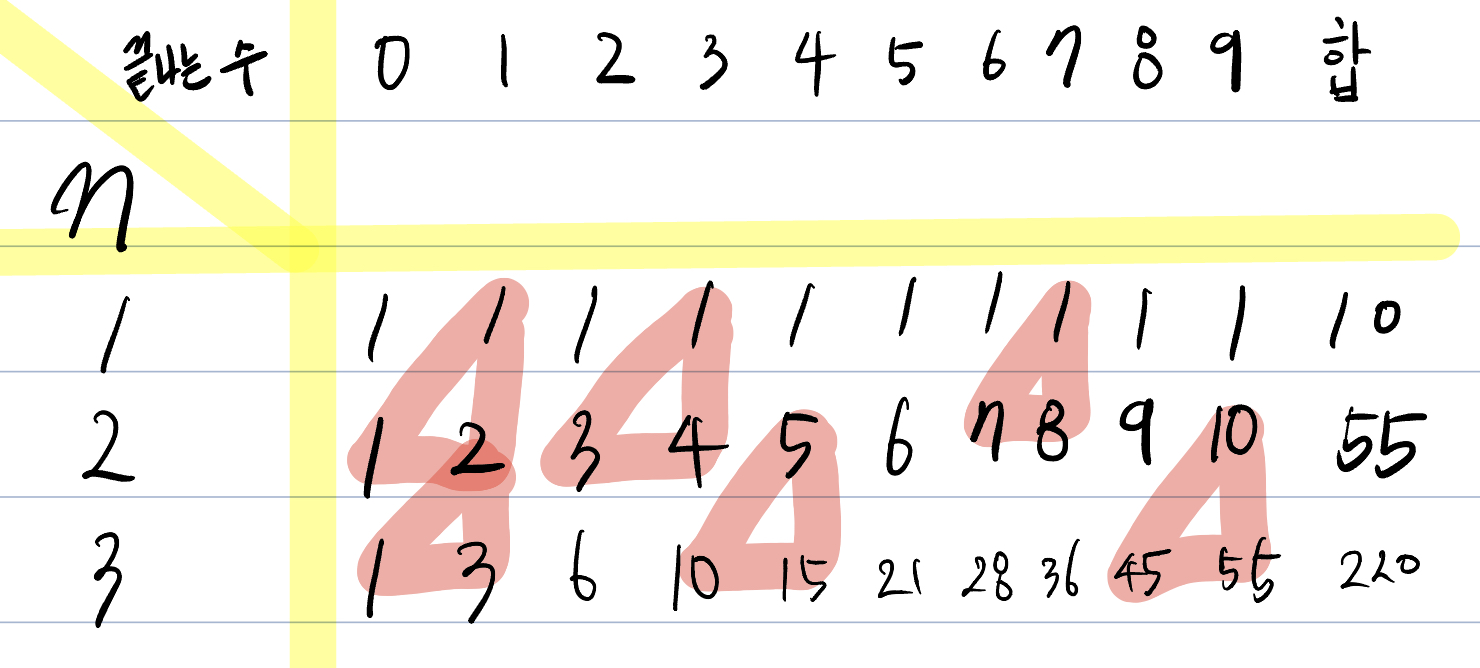 끝나는 수 0 1 2 3 4 5 6 7 8 9 합
n
1 1 1 1 1 1 1 1 1 1 1 10
2 1 2 3 4 5 6 7 8 9 10 55
3 1 3 6 10 15 21 28 36 45 55 220